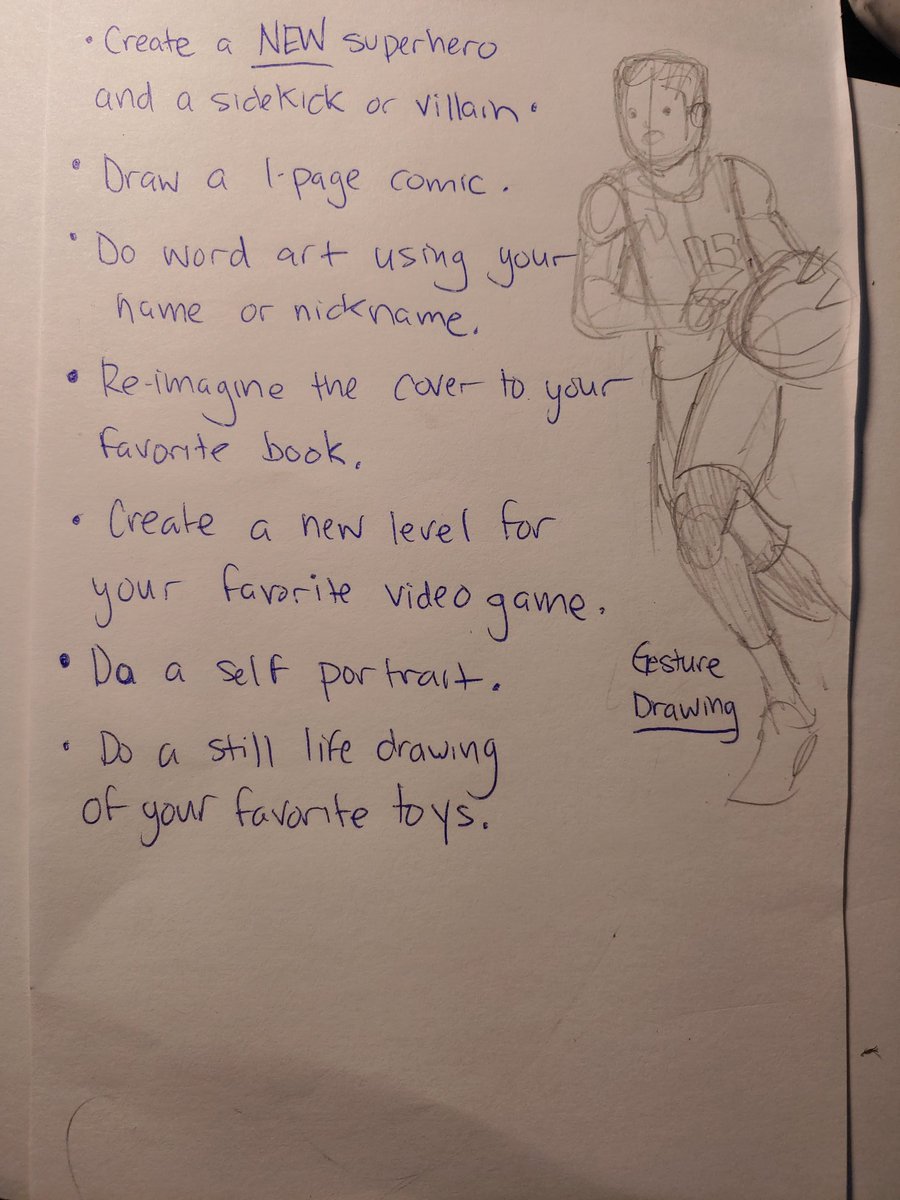 • Create a NEW superhero
and a sidekick or villain.
• Draw a 1-page comic.
• Do word art using your
name or nickname.
• Re-imagine the cover to your
favorite book.
• Create a new level for
your favorite video game.
• Do a self portrait.
• Do a still life drawing
of your favorite toys.
15
Gesture
Drawing